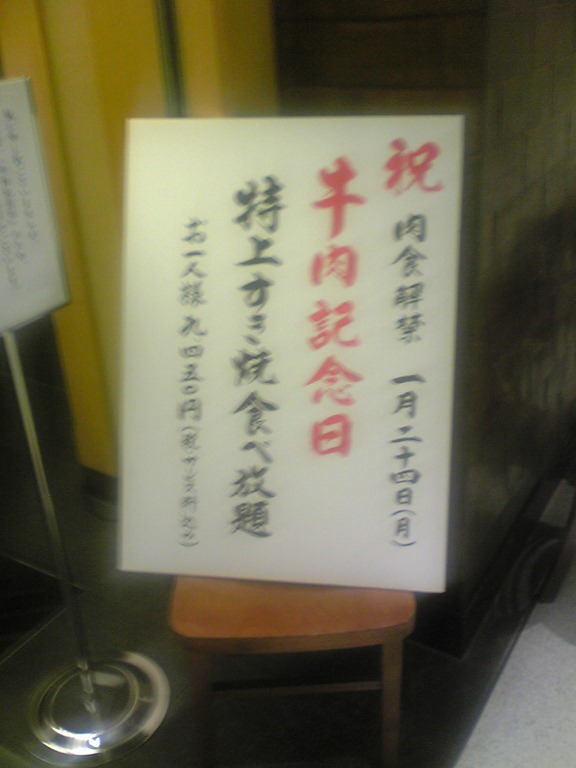 祝 肉食解禁 一月二十四日(月)
牛肉記念日
特上すき焼食べ放題
お一人様 九四五〇円(税・サービス料込み)